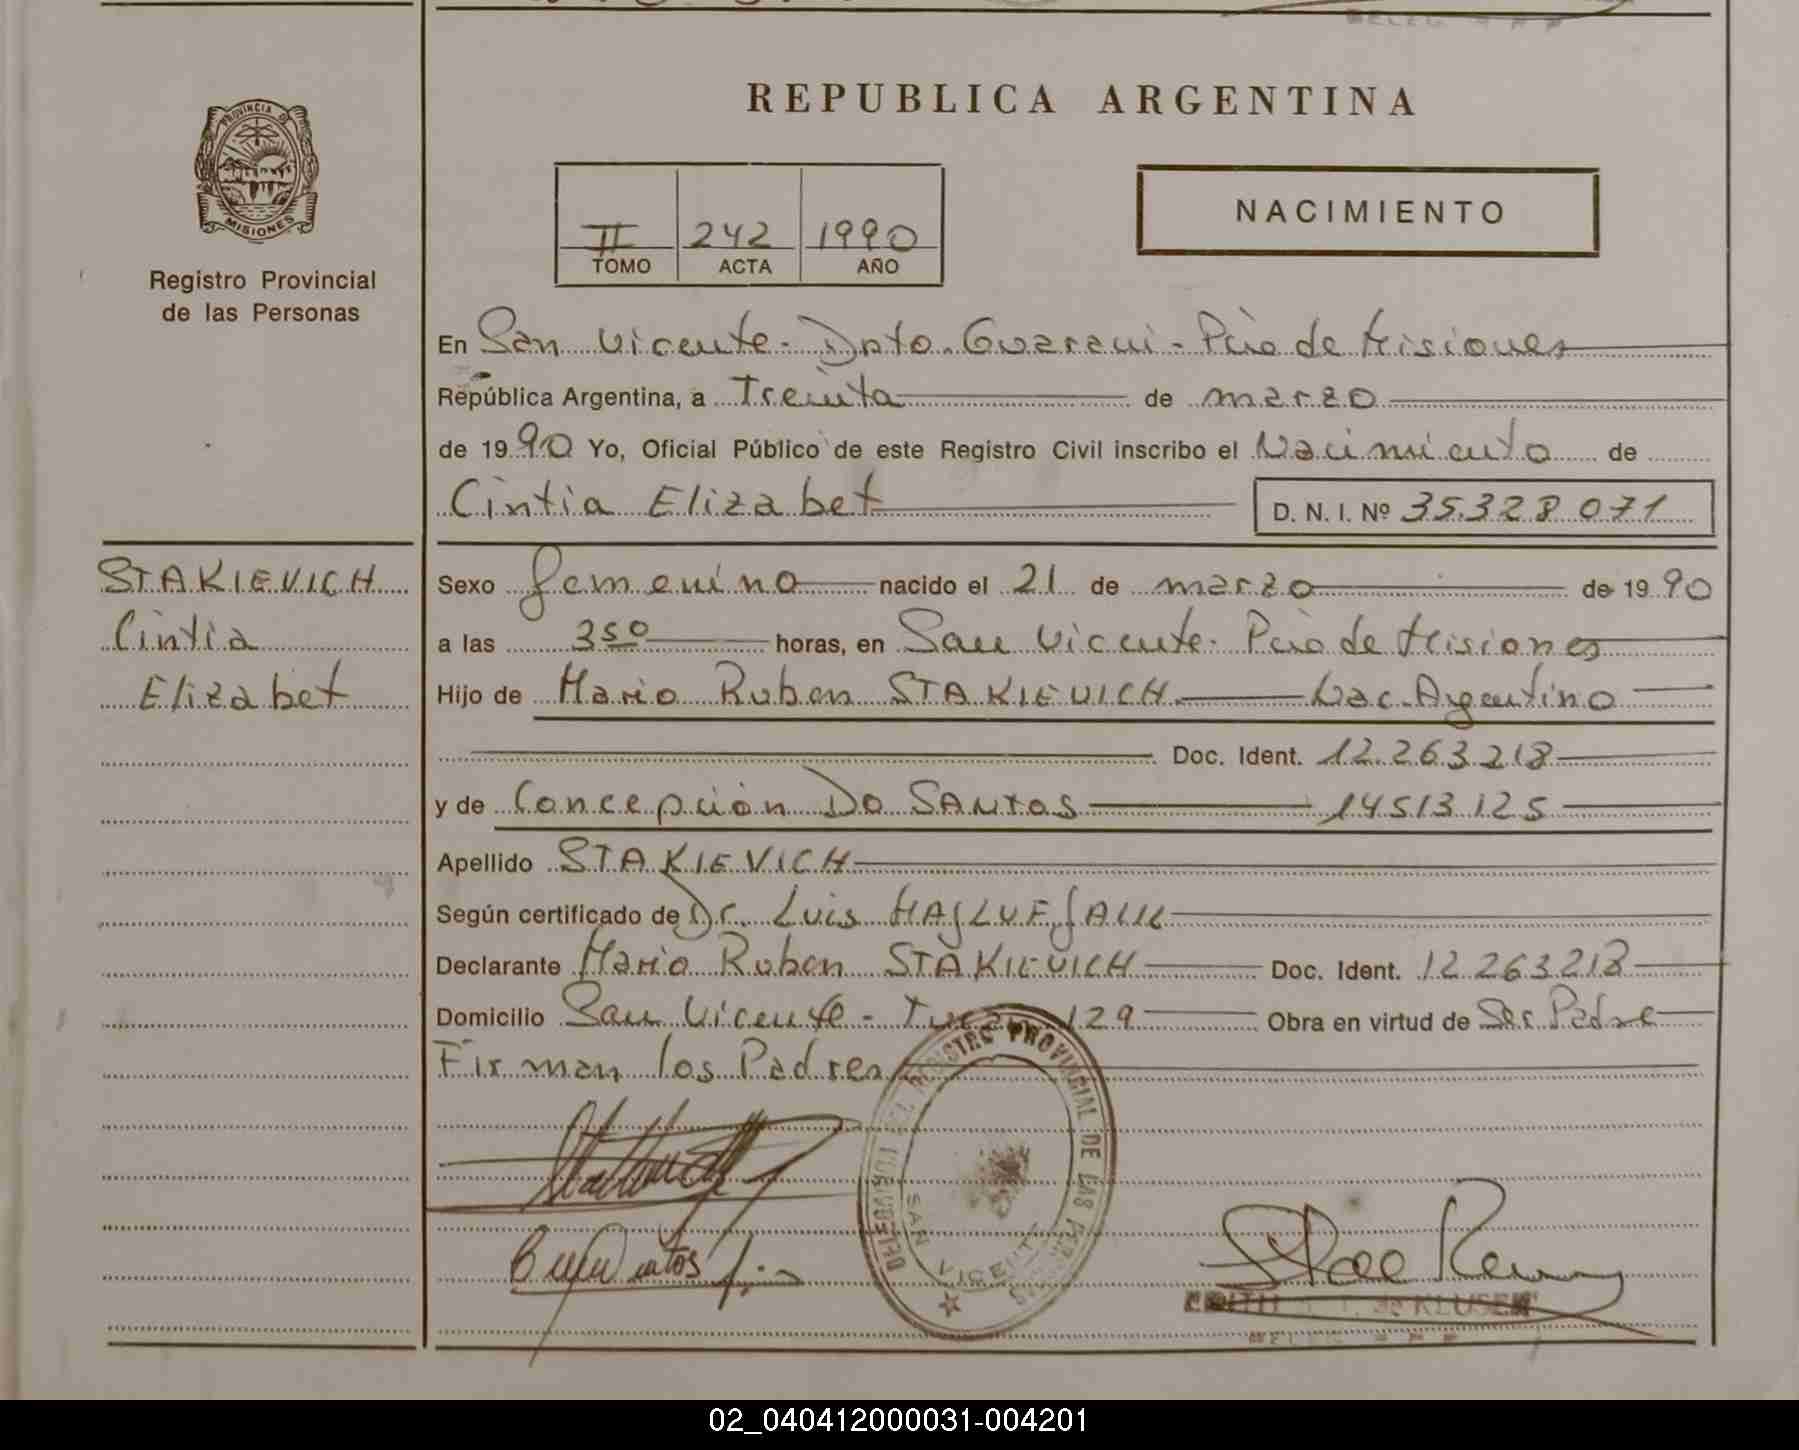 REPUBLICA ARGENTINA
PROVINCIA DE
MISIONES
Registro Provincial
de las Personas
II 242 1990
TOMO ACTA AÑO
NACIMIENTO
En San Vicente - Dpto. Guarani - Pcia de Misiones
República Argentina, a Treinta de marzo
de 1990 Yo, Oficial Público de este Registro Civil inscribo el Nacimiento de
Cintia Elizabet D. N. I. Nº 35.328 071
STAKIEVICH
Cintia
Elizabet
Sexo femenino nacido el 21 de marzo de 1990
a las 3 50 horas, en San Vicente - Pcia de Misiones
Hijo de Mario Ruben STAKIEVICH Nac. Argentino
Doc. Ident. 12.263.218
y de Concepción Do SANtos 14513125
Apellido STAKIEVICH
Según certificado de Dr. Luis
Declarante Mario Ruben STAKIEVICH Doc. Ident. 12 263 218
Domicilio San Vicente - 129 Obra en virtud de Ser Padre
Firman los Padres
DELEGACION DEL REGISTRO PROVINCIAL DE LAS PERSONAS
SAN VICENTE
MISIONES
EDITH de KLUSEN
02_040412000031-004201